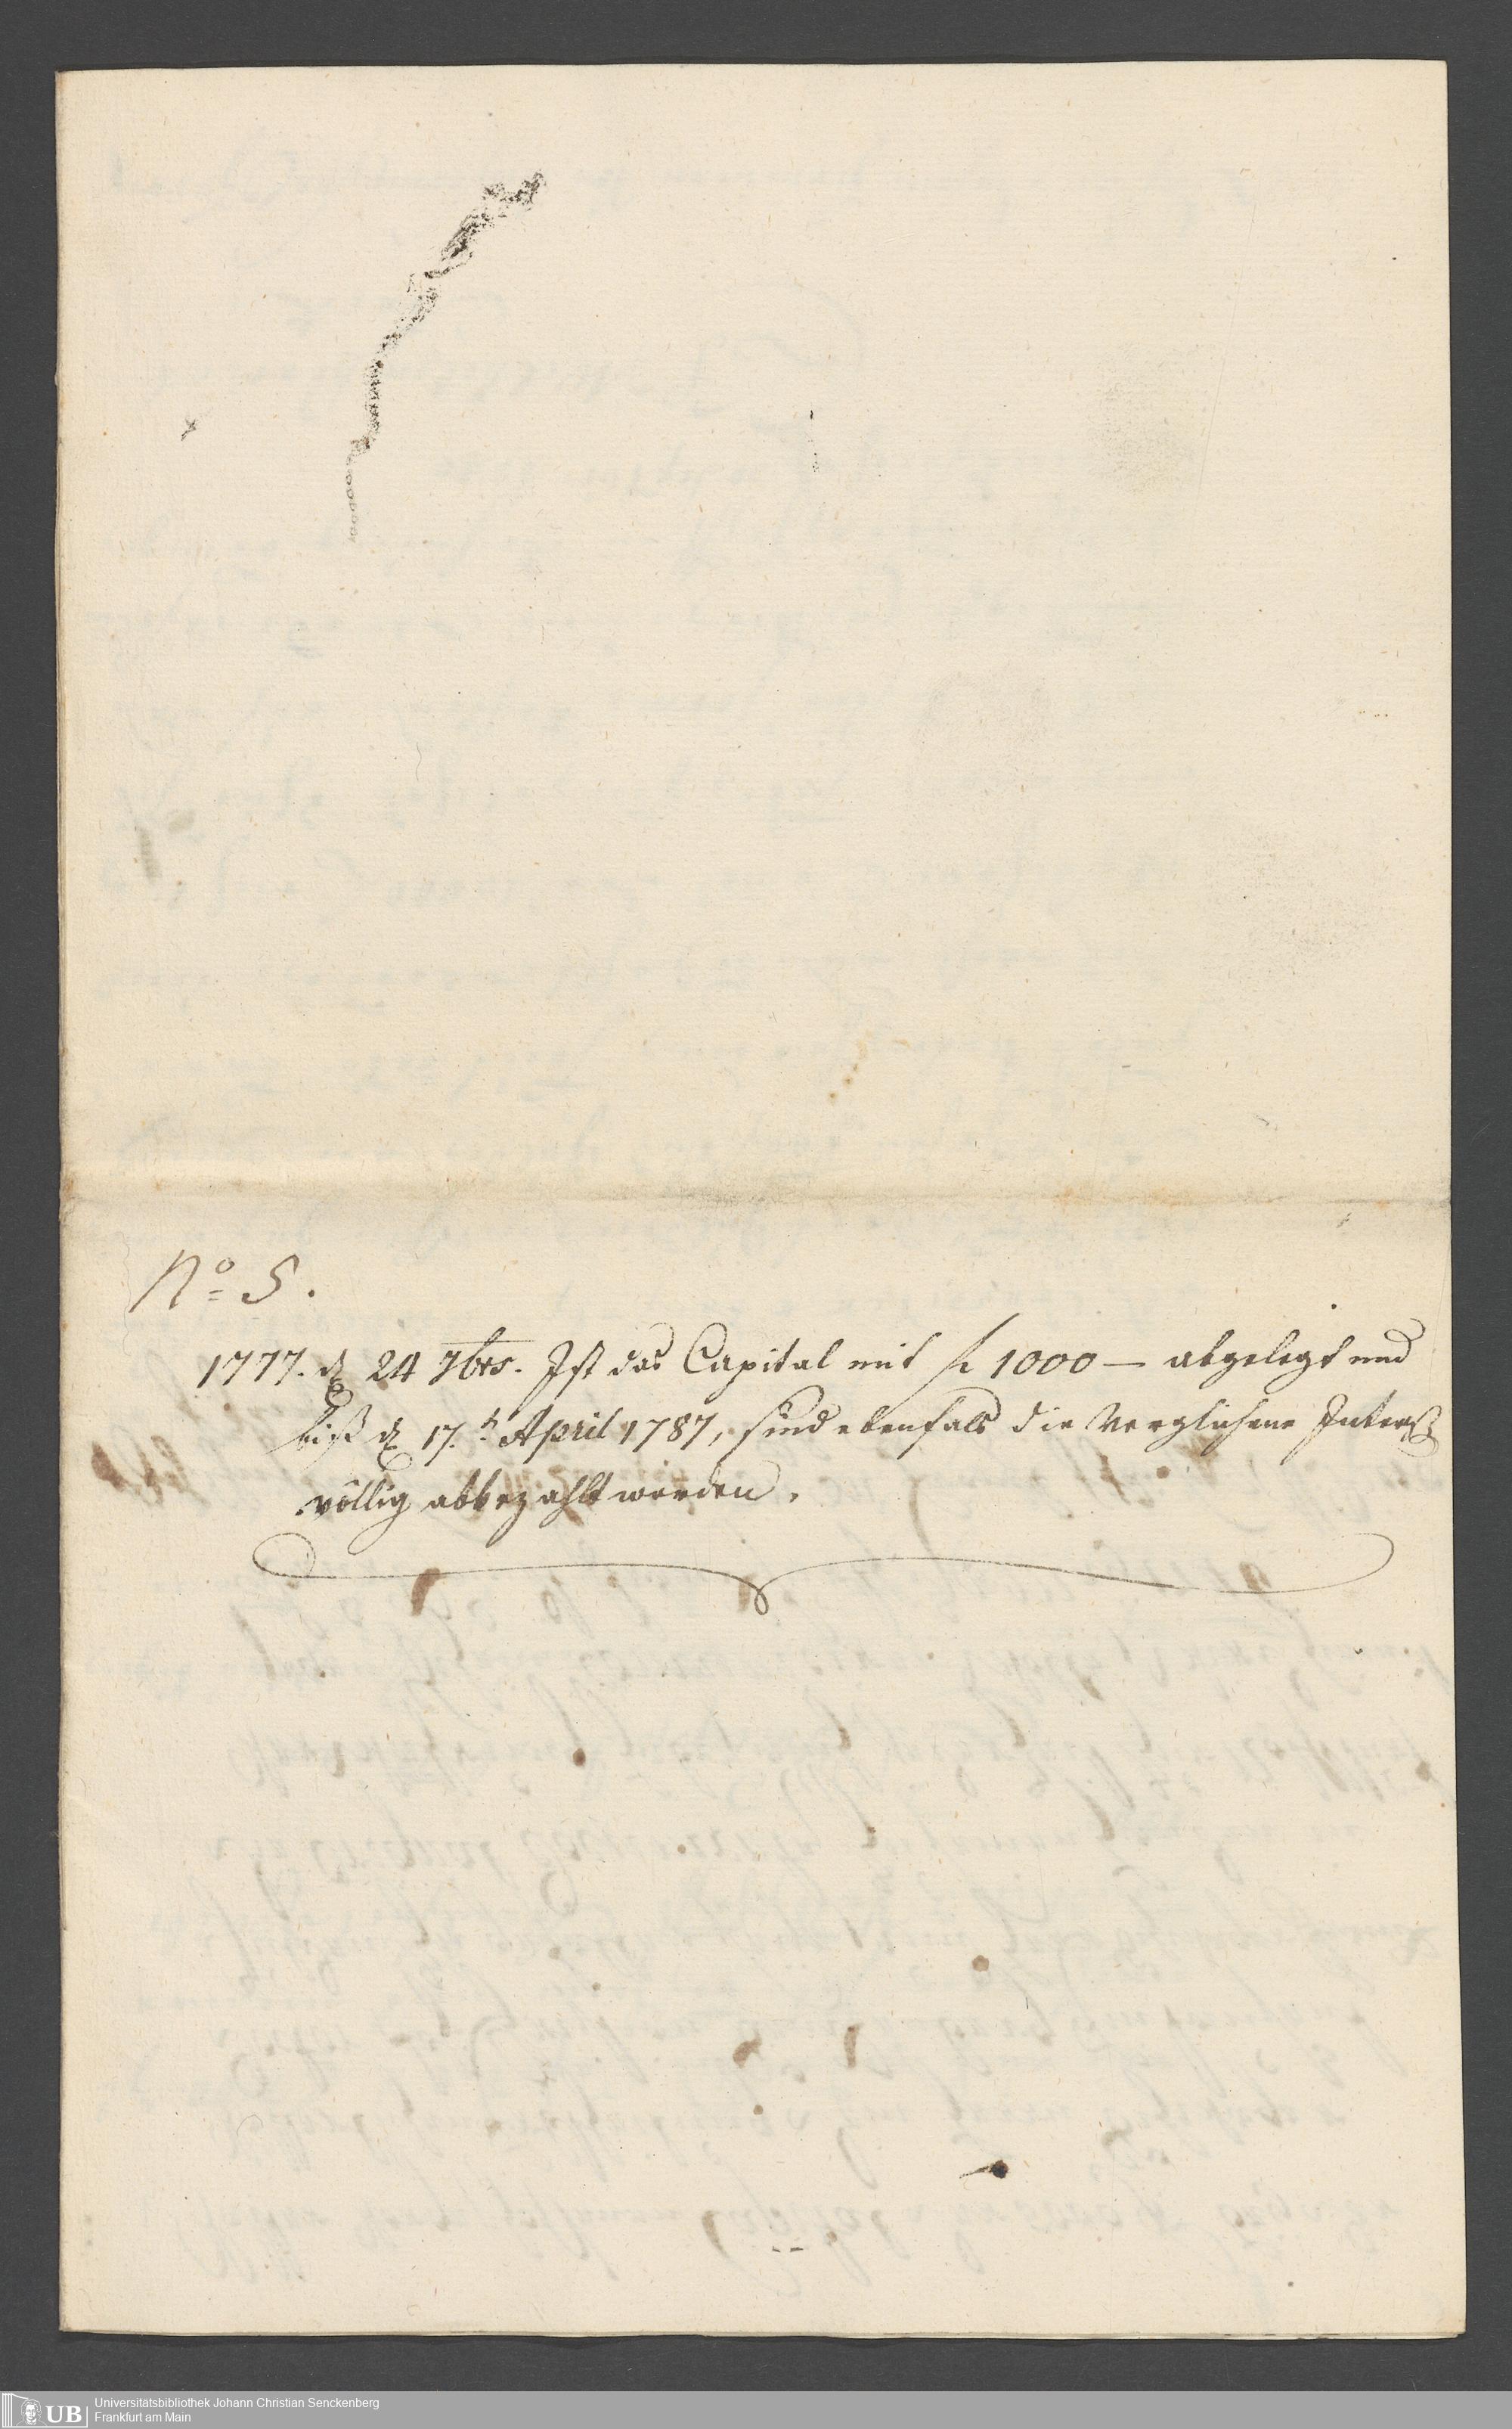 No 5.
1777. d 24 7brs. Ist das Capital mit fl 1000 — abgelegt und
biß d 17.t April 1787, sind ebenfals die Verglichene Interessen
völlig abbezahlt worden.
UB
Universitätsbibliothek Johann Christian Senckenberg
Frankfurt am Main